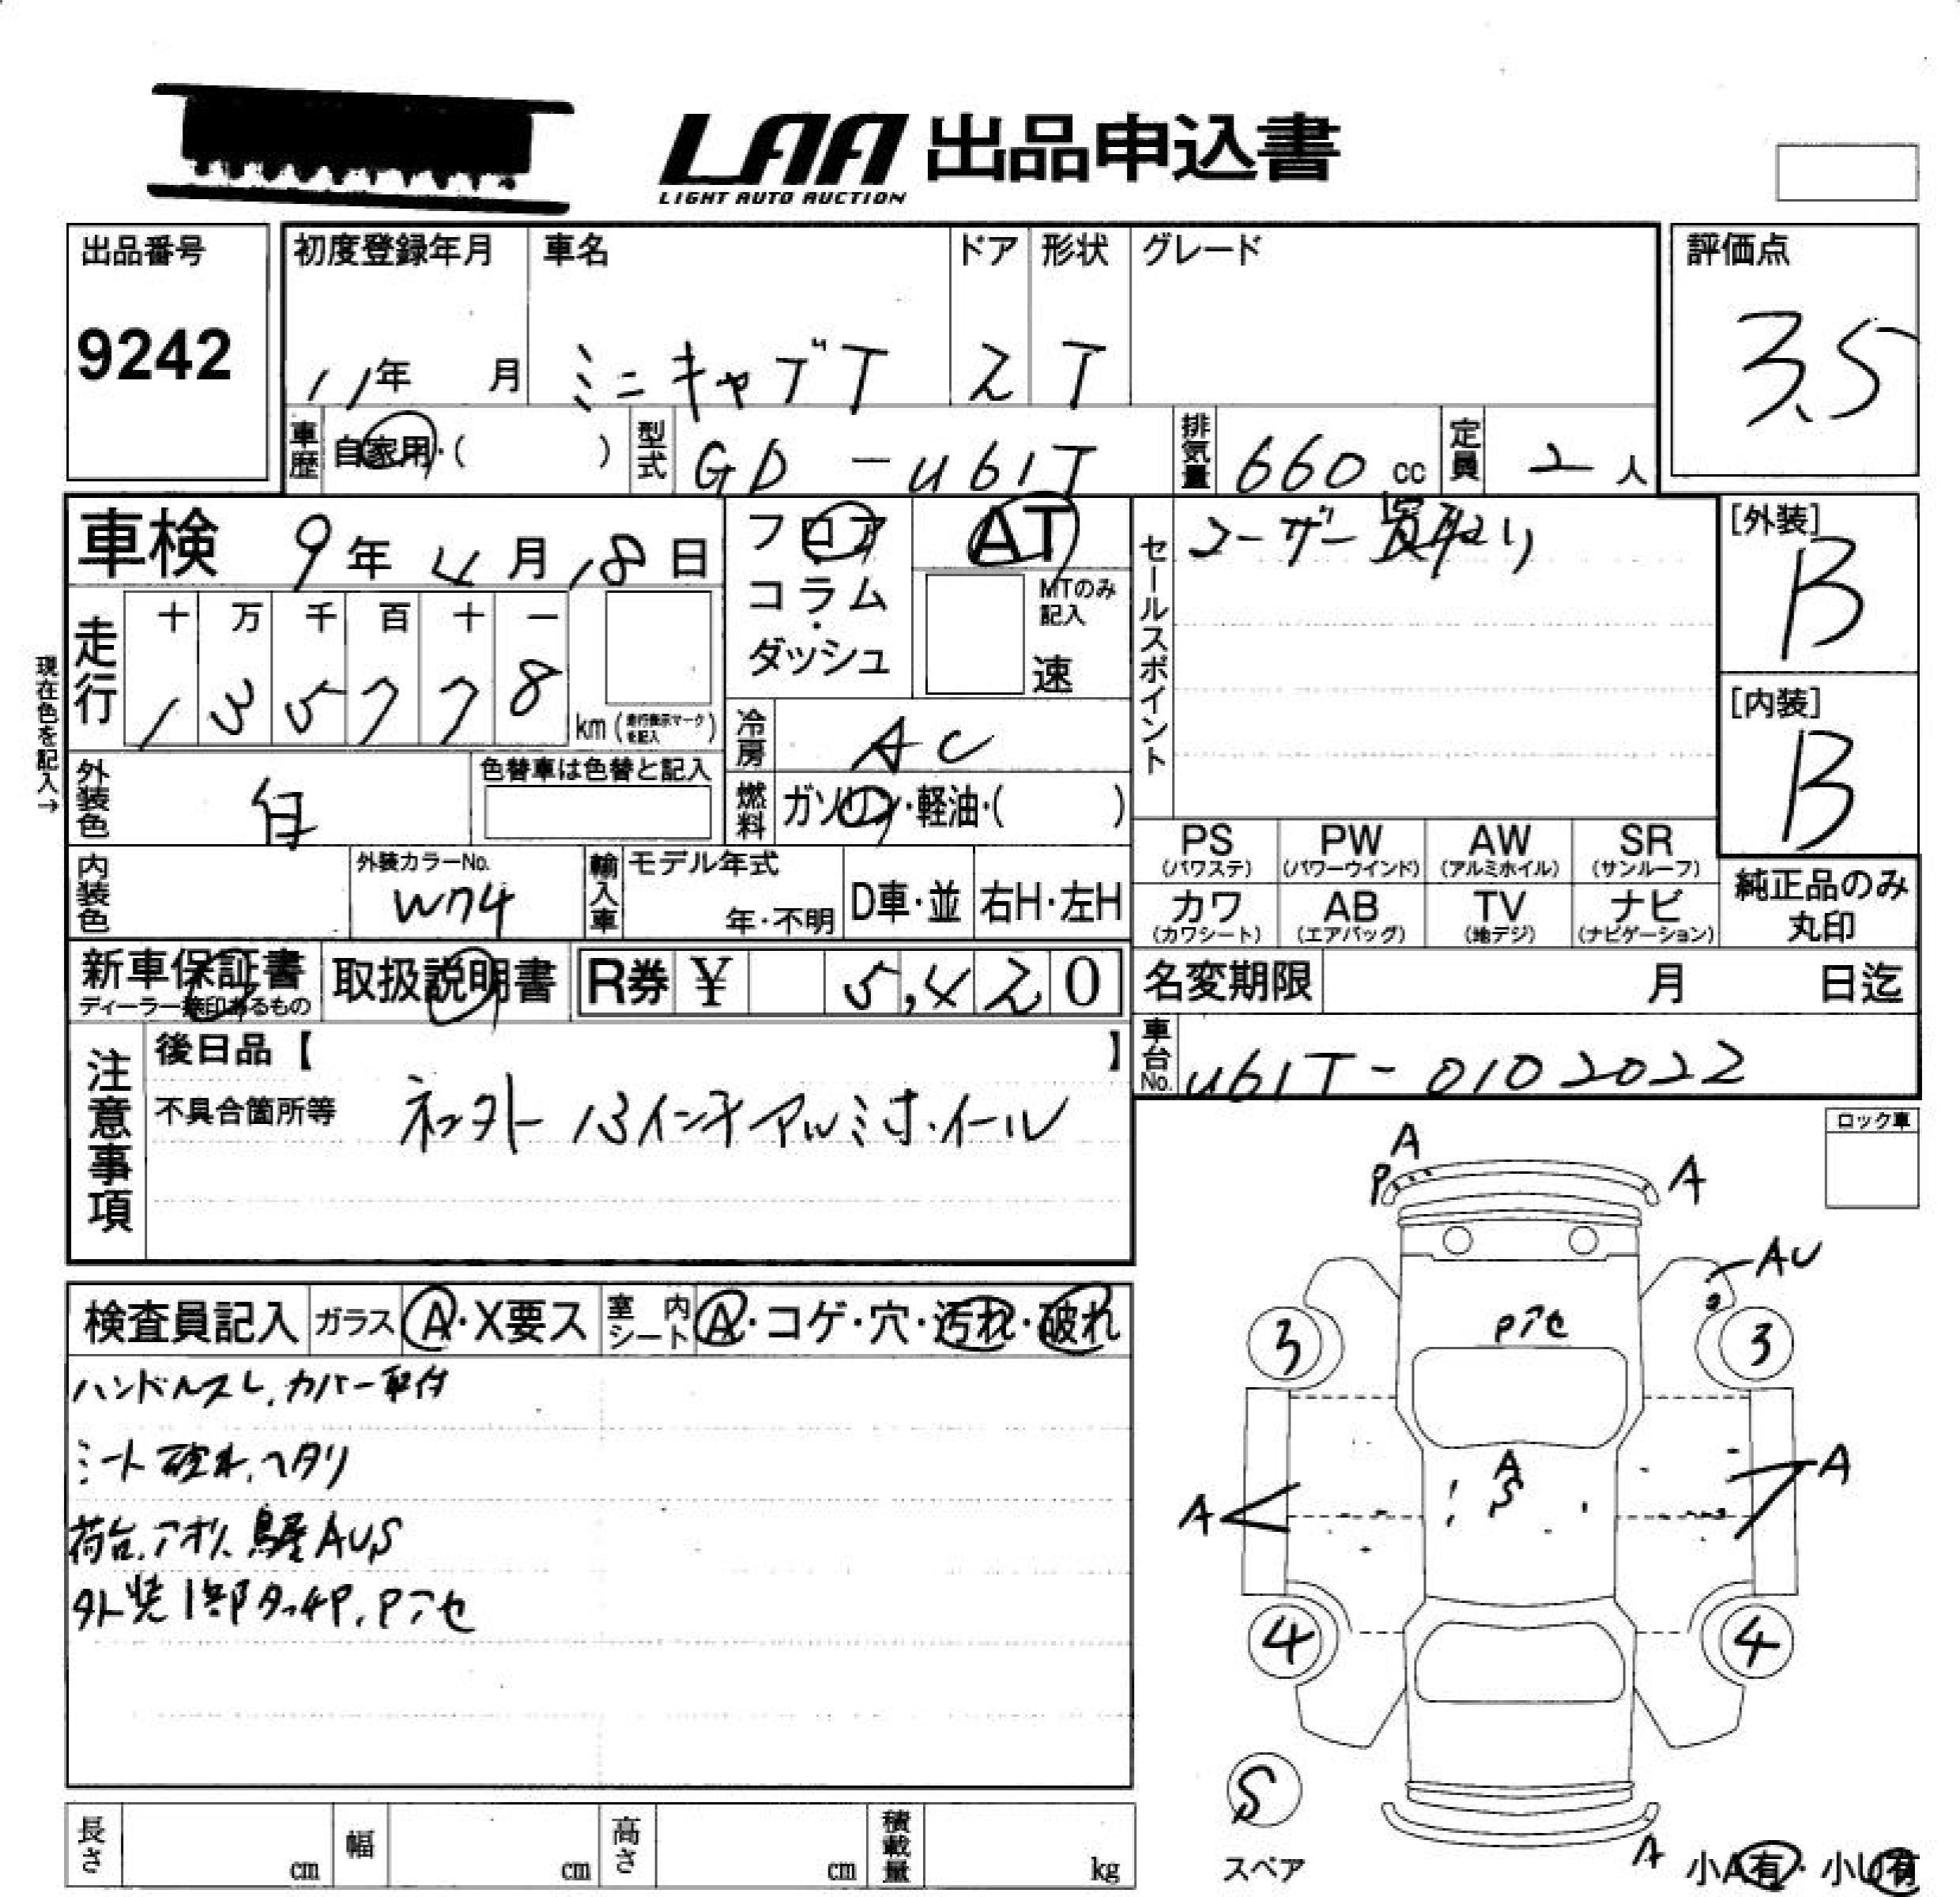 LAA 出品申込書
LIGHT AUTO AUCTION
出品番号
9242
初度登録年月
11年 月
車名
ミニキャブT
ドア
2
形状
T
グレード
評価点
3.5
車歴 自家用・( )
型式 GD-U61T
排気量 660 cc
定員 2人
車検 9年4月18日
走行 十 万 千 百 十 一
1 3 5 7 7 8
km (走行表示マークを記入)
現在色を記入→
外装色 白
色替車は色替と記入
内装色
外装カラーNo.
W74
フロア
コラム・
ダッシュ
AT
MTのみ記入
速
冷房 AC
燃料 ガソリン・軽油・( )
輸入車 モデル年式
年・不明
D車・並
右H・左H
セールスポイント
ユーザー買取り
[外装]
B
[内装]
B
PS (パワステ)
PW (パワーウインド)
AW (アルミホイル)
SR (サンルーフ)
カワ (カワシート)
AB (エアバッグ)
TV (地デジ)
ナビ (ナビゲーション)
純正品のみ
丸印
新車保証書
ディーラー捺印あるもの
取扱説明書
R券 ¥ 5,420
名変期限 月 日迄
車台No. U61T-0102022
注意事項
後日品【 】
不具合箇所等
社外13インチアルミホイール
ロック車
検査員記入
ガラス A・X要ス
室内シート A・コゲ・穴・汚れ・破れ
ハンドルスレ、カバー取付
シート破れ、ヘタリ
荷台、アオリ、鳥居AUS
外装1部タッチP、Pアセ
A
P
A
AU
Pアセ
3
3
A
S
A
A
4
4
S
スペア
A
小A有・小U有
長さ cm
幅 cm
高さ cm
積載量 kg